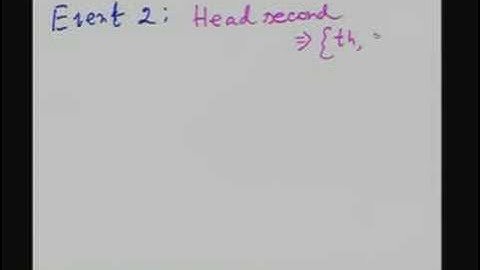 Event 2: Head second
⇒ {th,